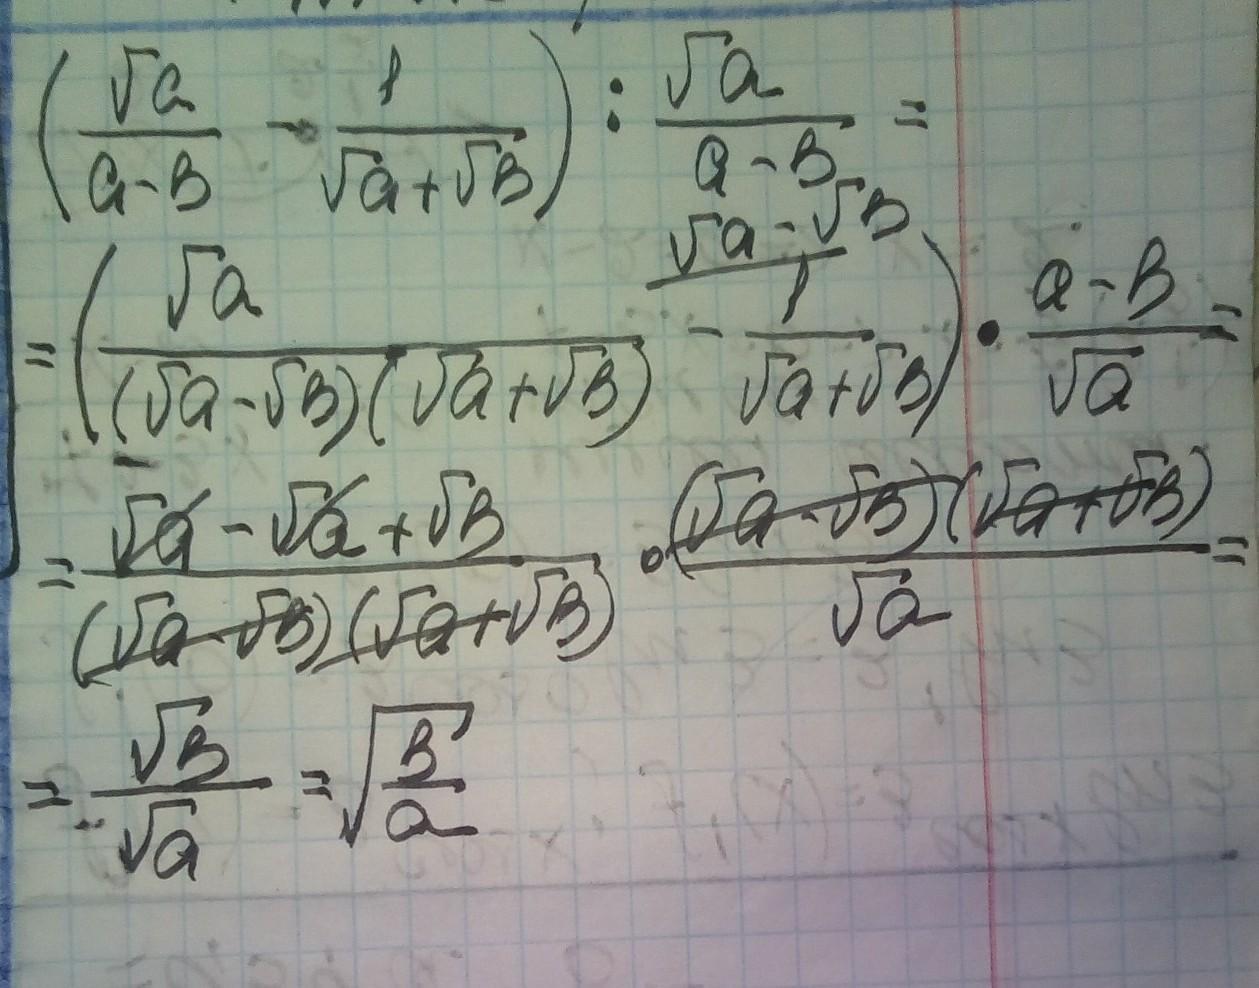 (√a/(a-в) - 1/(√a+√в)) : √a/(a-в) =
= (√a/((√a-√в)(√a+√в)) - 1/(√a+√в)) √a-√в • (a-в)/√a =
= (√a-√a+√в)/((√a-√в)(√a+√в)) • ((√a-√в)(√a+√в))/√a =
= √в/√a = √(в/a)